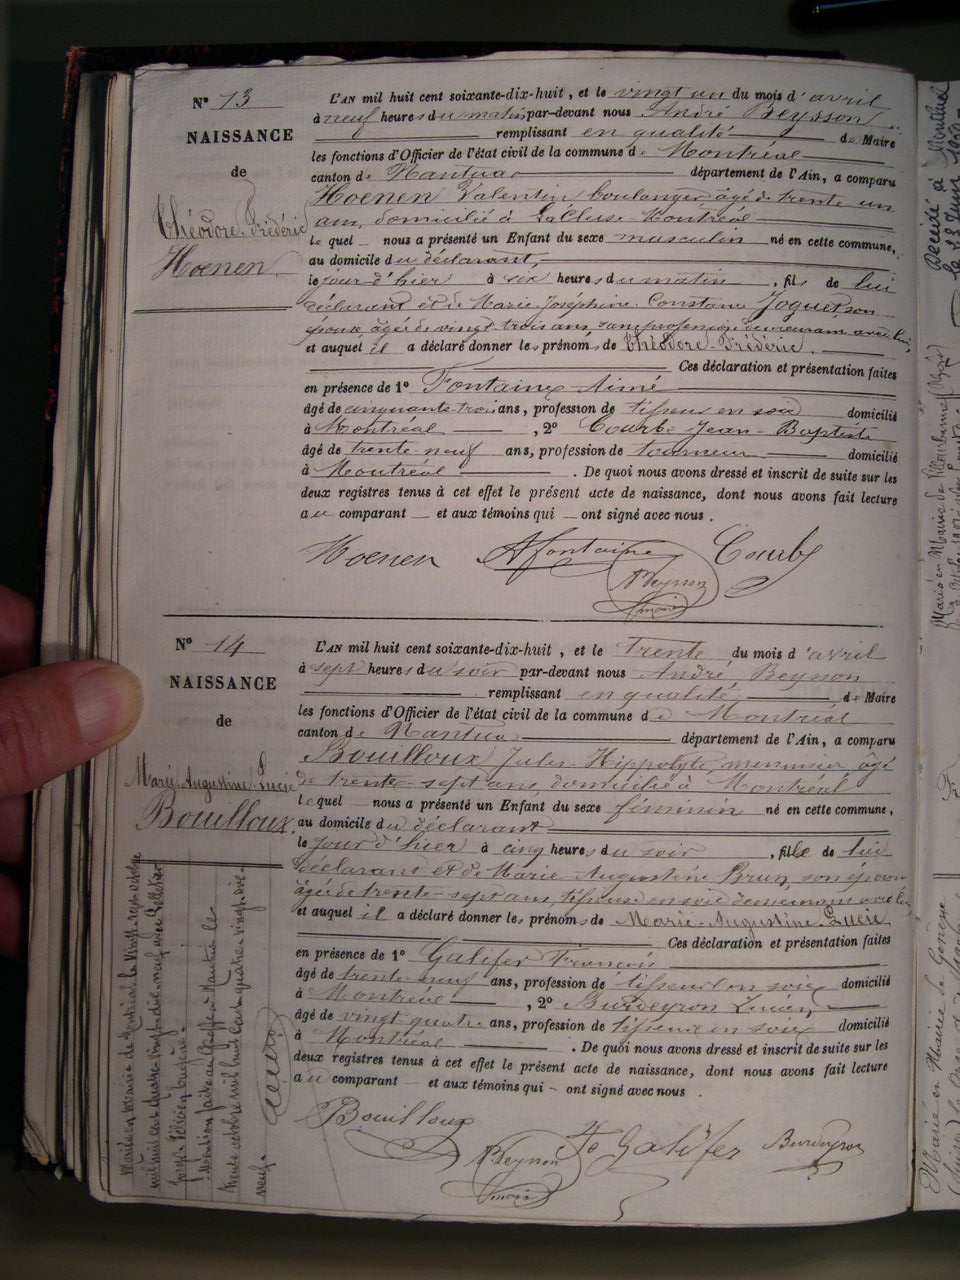 N° 13
NAISSANCE
de
Théodore-Frédéric
Hoenen
L'AN mil huit cent soixante-dix-huit, et le vingt un du mois d'avril
à neuf heures du matin par-devant nous André Beysson
remplissant en qualité de Maire
les fonctions d'Officier de l'état civil de la commune de Montréal
canton de Nantua département de l'Ain, a comparu
Hoenen Valentin boulanger âgé de trente un
ans, domicilié à LaCluse Montréal
le quel nous a présenté un Enfant du sexe masculin né en cette commune,
au domicile du déclarant,
le jour d'hier à six heures du matin, fils de lui
déclarant et de Marie Joséphine Constance Joguet, son
épouse âgée de vingt trois ans, sans profession demeurant avec lui,
et auquel il a déclaré donner les prénoms de Théodore-Frédéric.
Ces déclaration et présentation faites
en présence de 1° Fontaine Aimé
âgé de cinquante-trois ans, profession de tisseur en soie domicilié
à Montréal, 2° Courbe Jean-Baptiste
âgé de trente-neuf ans, profession de tourneur domicilié
à Montréal. De quoi nous avons dressé et inscrit de suite sur les
deux registres tenus à cet effet le présent acte de naissance, dont nous avons fait lecture
au comparant et aux témoins qui ont signé avec nous.
Hoenen Afontaine Courbe
maire
N° 14
NAISSANCE
de
Marie-Augustine-Lucie
Bouilloux
L'AN mil huit cent soixante-dix-huit, et le trente du mois d'avril
à sept heures du soir par-devant nous André Beysson
remplissant en qualité de Maire
les fonctions d'Officier de l'état civil de la commune de Montréal
canton de Nantua département de l'Ain, a comparu
Bouilloux Jules-Hippolyte menuisier âgé
de trente-sept ans, domicilié à Montréal
le quel nous a présenté un Enfant du sexe féminin né en cette commune,
au domicile du déclarant
le jour d'hier à cinq heures du soir, fille de lui
déclarant et de Marie-Augustine Brun, son épouse
âgée de trente-sept ans, tisseuse en soie demeurant avec lui,
et auquel il a déclaré donner les prénoms de Marie-Augustine-Lucie
Ces déclaration et présentation faites
en présence de 1° Galifer François
âgé de trente neuf ans, profession de tisseur en soie domicilié
à Montréal, 2° Burdeyron Lucien
âgé de vingt quatre ans, profession de tisseur en soie domicilié
à Montréal. De quoi nous avons dressé et inscrit de suite sur les
deux registres tenus à cet effet le présent acte de naissance, dont nous avons fait lecture
au comparant et aux témoins qui ont signé avec nous.
Bouilloux Galifer Burdeyron
maire
Mariée en mairie de Montréal le vingt sept octobre
mil huit cent quatre vingt dix neuf avec Pelletier
Mention faite au Greffe à Nantua le
trente octobre mil huit cent quatre vingt dix
neuf.
Décédé à Montluel
le 23 Juin
Marié en Mairie de Villeurbanne (Rhône)
Marié en Mairie de Genève